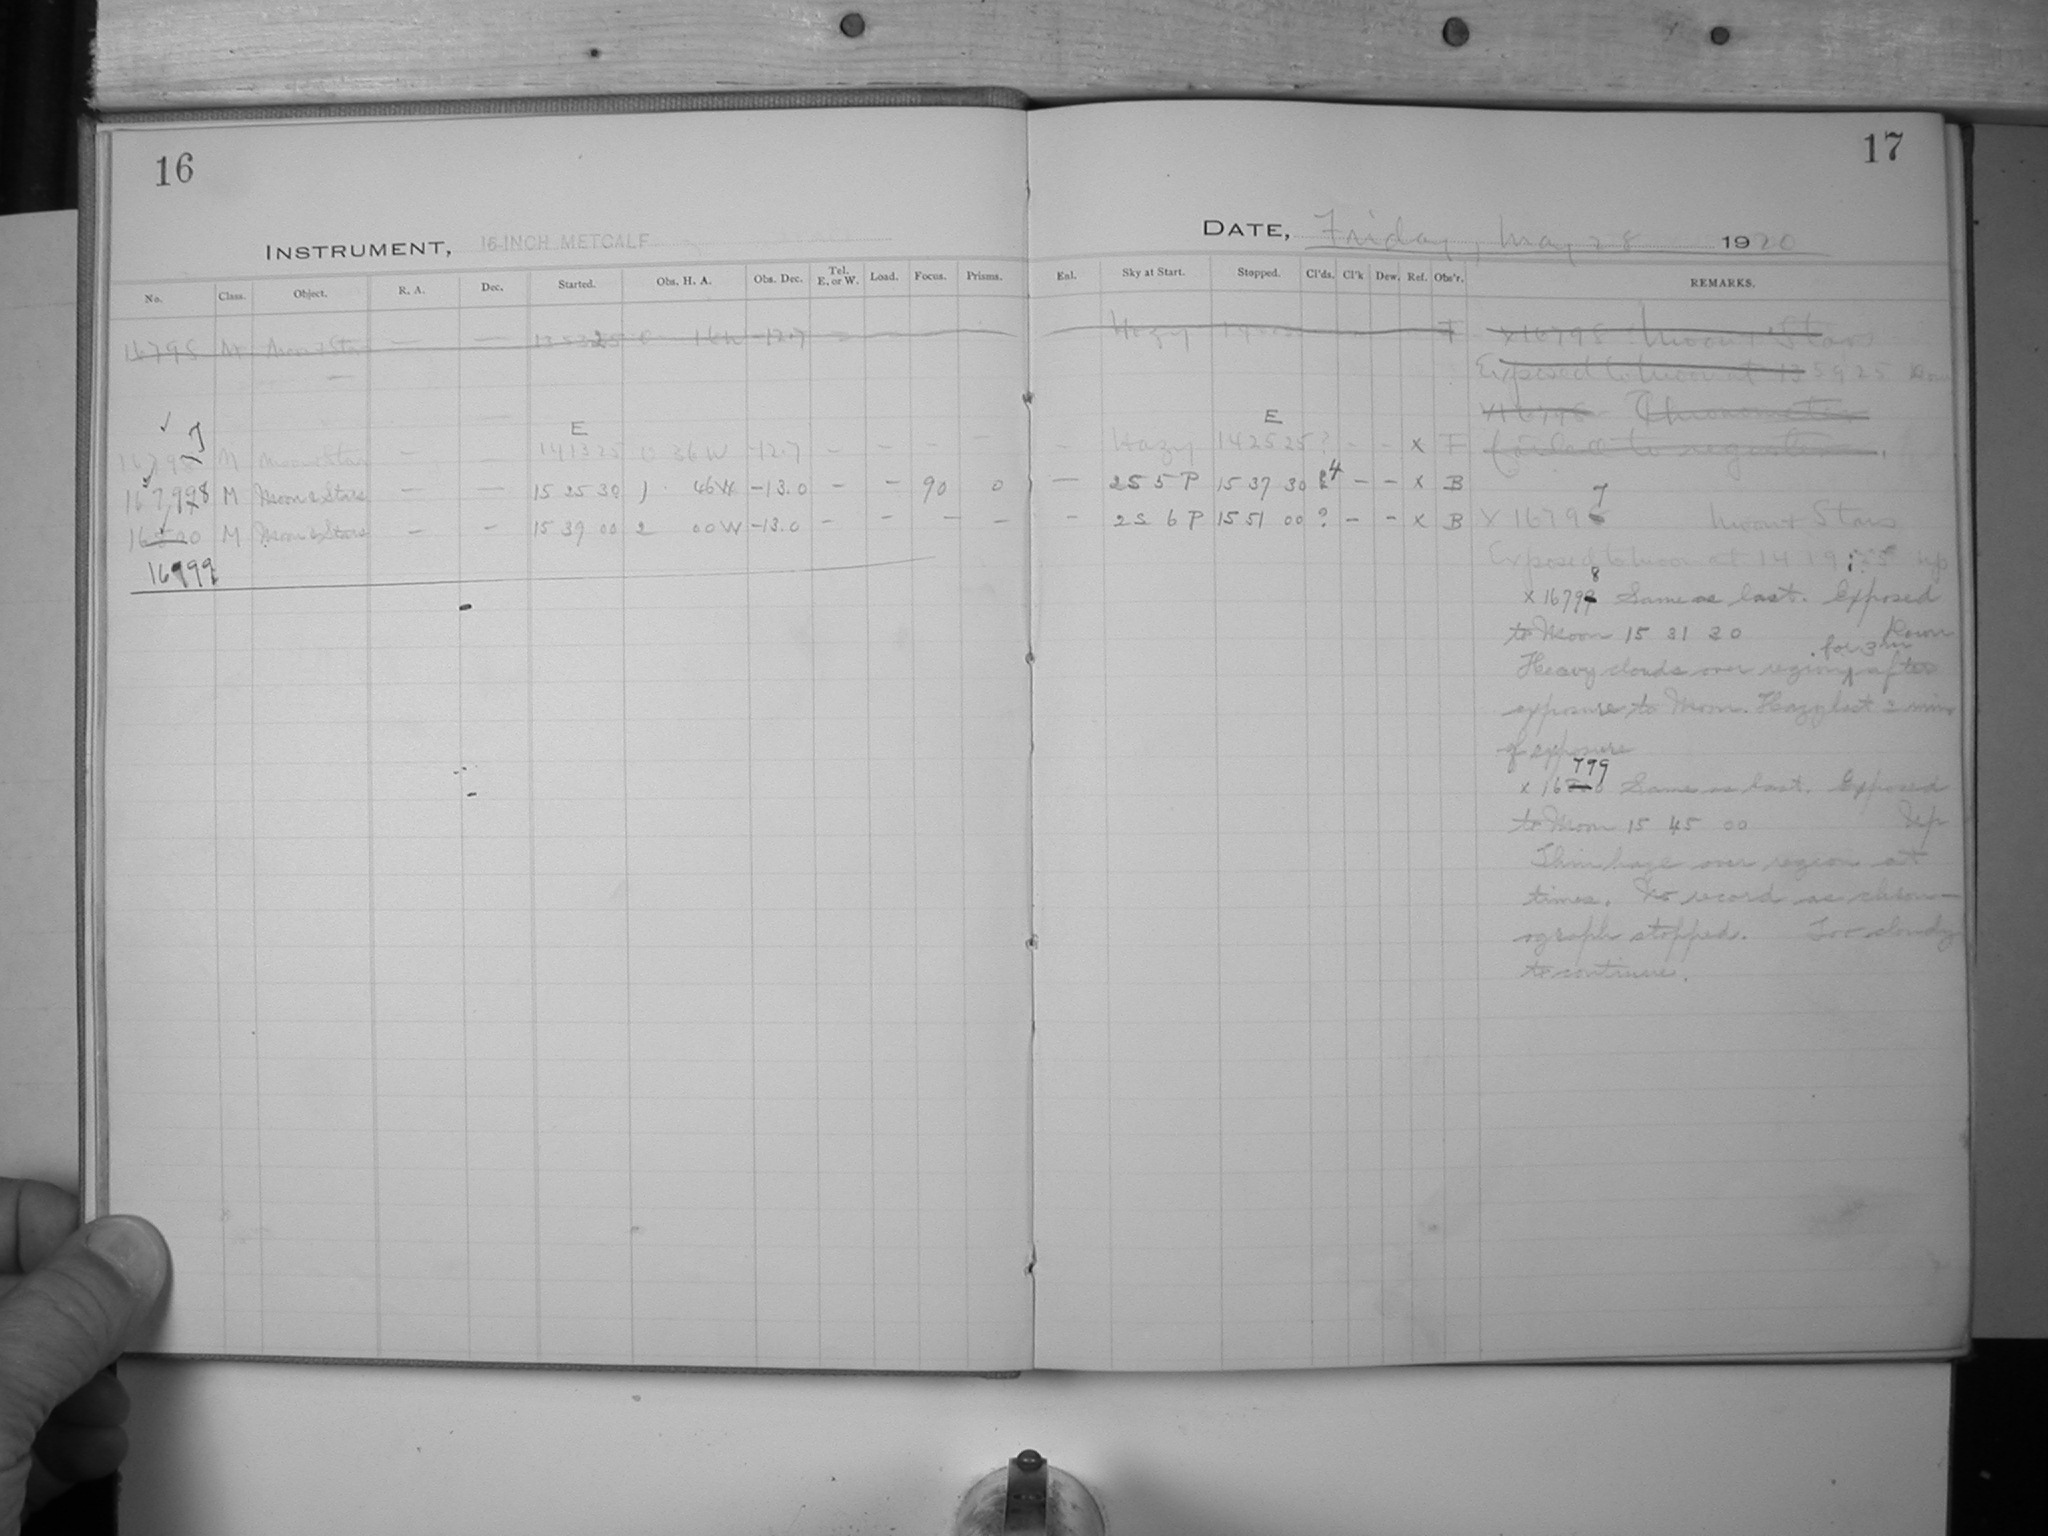 16
INSTRUMENT, 16-INCH METCALF
No. Class. Object. R. A. Dec. Started. Obs. H. A. Obs. Dec. Tel. E. or W. Load. Focus. Prisms.
16795 M Moon & Stars — — 0 16W -12.7
E
M Moon & Stars — — 14 13 25 0 36W -12.7 — — — —
M Moon & Stars — — 15 25 30 1 46W -13.0 — — 90 0
M Moon & Stars — — 15 39 00 2 00W -13.0 — — — —
16799
17
DATE, Friday, May 28 1920
Enl. Sky at Start. Stopped. Cl'ds. Cl'k Dew. Ref. Obs'r. REMARKS.
Hazy F
E
— Hazy 14 25 25 ? — — x F
— 2S 5 P 15 37 30 4 — — x B
— 2S 6 P 15 51 00 ? — — x B
x16795 Moon & Stars
Exposed to Moon at 13 59 25 Down
Chronometer
failed to register.
7
x 1679 Moon & Stars
Exposed to Moon at 14 19 25 up
8
x 1679 Same as last. Exposed
to Moon 15 31 30 Down
for 3m
Heavy clouds over region after
exposure to Moon. Hazy last 2 min
of exposure
799
x 16 Same as last. Exposed
to Moon 15 45 00 Up
Thin haze over region at
times. No record as chron-
ograph stopped. Too cloudy
to continue.